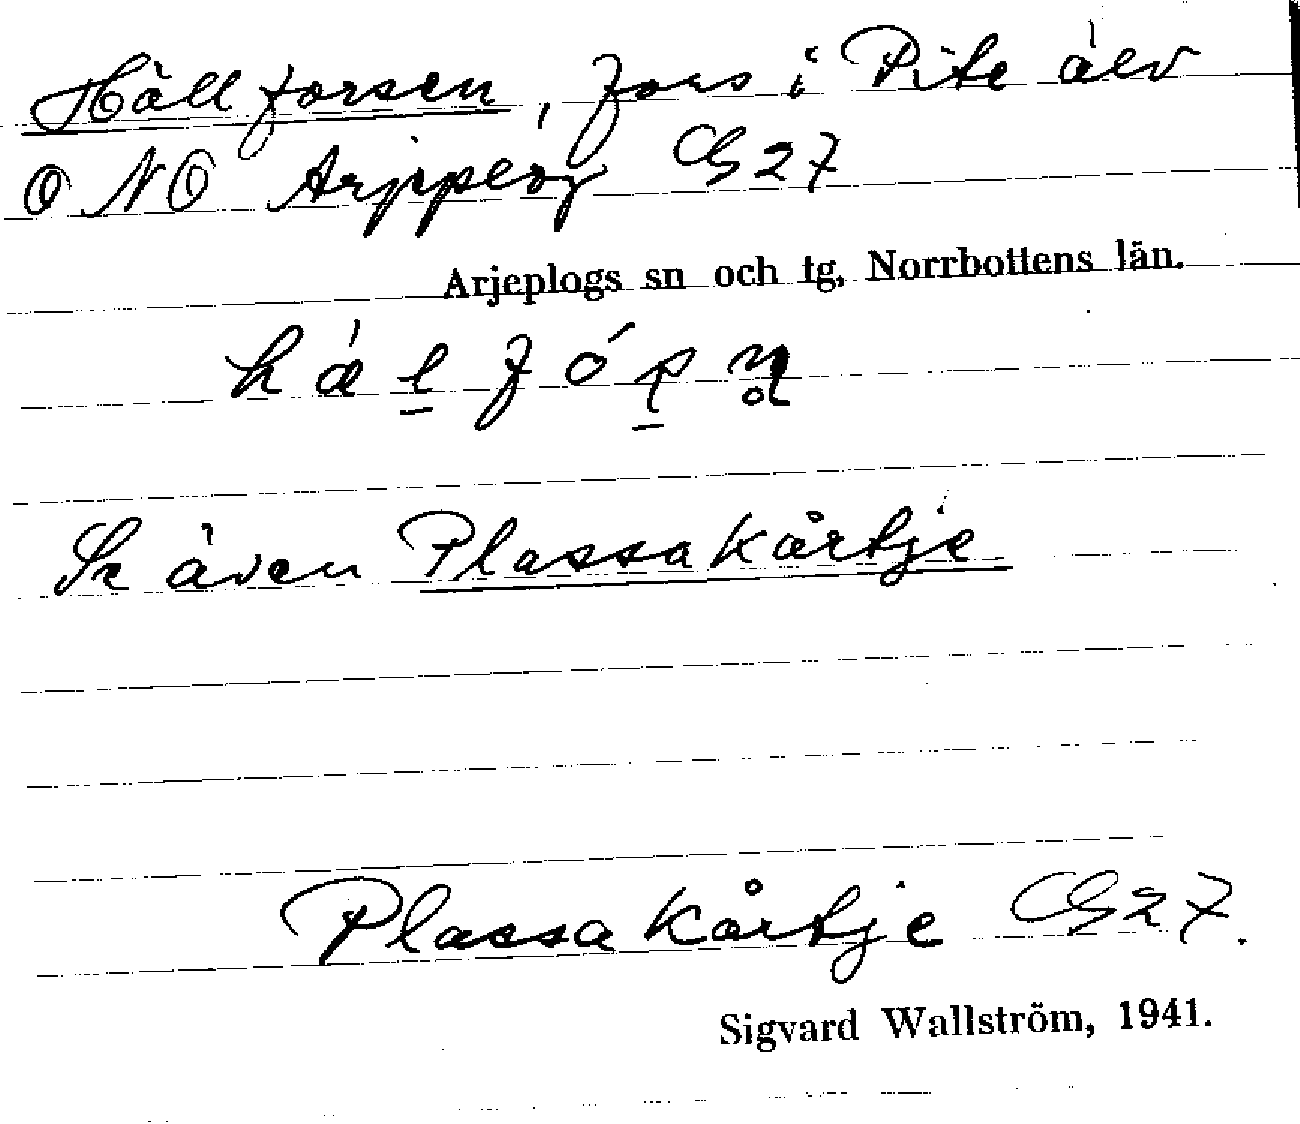 Hällforsen, fors i Pite älv
ONO Arjeplog GS 27
Arjeplogs sn och tg, Norrbottens län.
Se även Plassakårtje
Plassakårtje GS 27.
Sigvard Wallström, 1941.